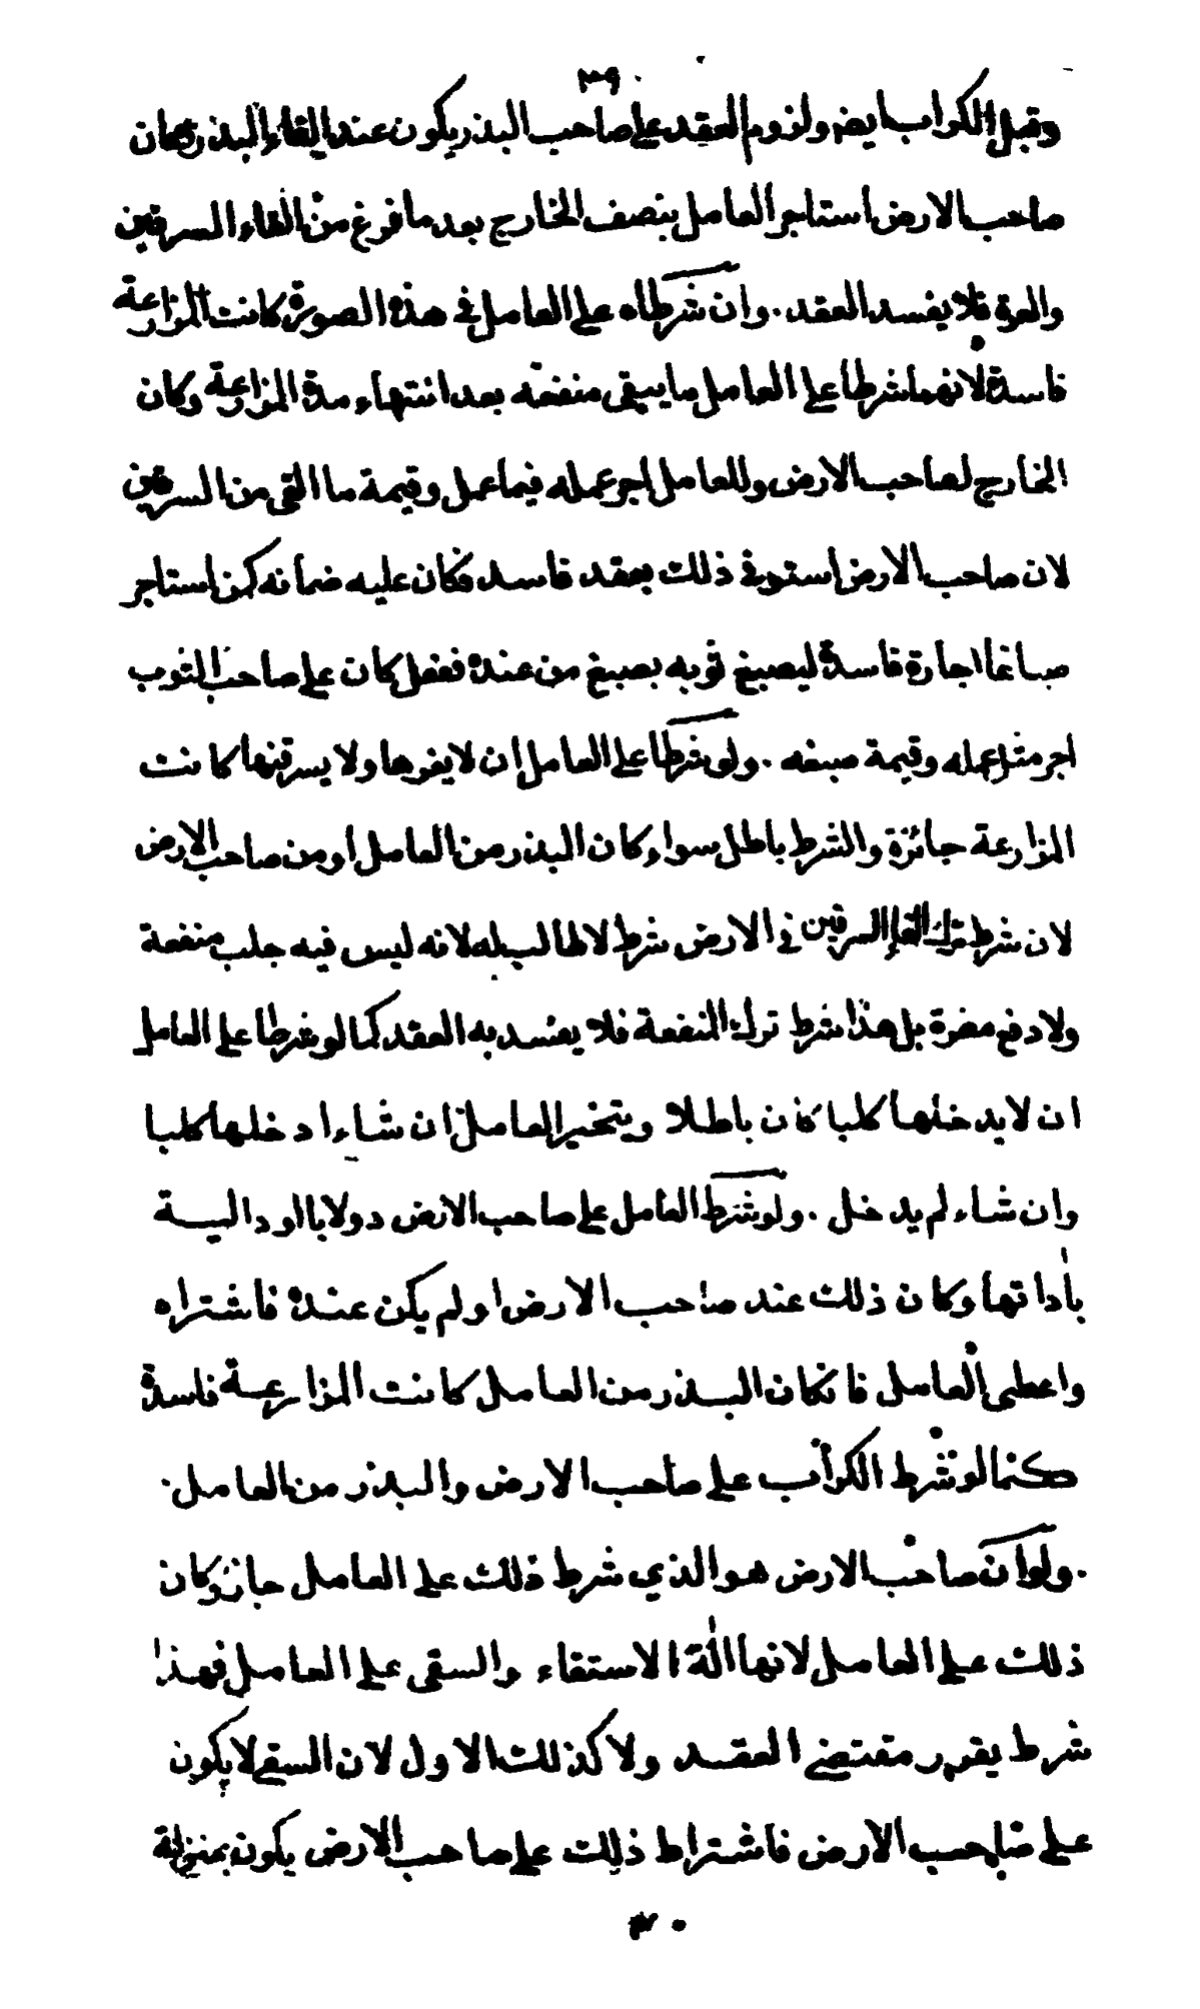 ٣٩
وقبل الكراب ايض ولزوم العقد على صاحب البذر يكون عند القاء البذر فكان
صاحب الارض استاجر العامل بنصف الخارج بعد ما فرغ من القاء السرقين
والعرة فلا يفسد العقد . وان شرطاه على العامل في هذه الصورة كانت المزارعة
فاسدة لانهما شرطا على العامل ما يبقى منفعته بعد انتهاء مدة المزارعة وكان
الخارج لصاحب الارض وللعامل اجر عمله فيما عمل وقيمة ما القى من السرقين
لان صاحب الارض استوفى ذلك بعقد فاسد فكان عليه ضمانه كمن استاجر
صباغا اجارة فاسدة ليصبغ ثوبه بصبغ من عنده ففعل كان على صاحب الثوب
اجر مثل عمله وقيمة صبغه . ولو شرطا على العامل ان لا يعرها ولا يسرقنها كانت
المزارعة جائزة والشرط باطل سواء كان البذر من العامل او من صاحب الارض
لان شرط ترك القاء السرقين في الارض شرط لا طالب له لانه ليس فيه جلب منفعة
ولا دفع مضرة بل هذا شرط ترك المنفعة فلا يفسد به العقد كما لو شرطا على العامل
ان لا يدخلها كلبا كان باطلا ويتخير العامل ان شاء ادخلها كلبا
وان شاء لم يدخل . ولو شرط العامل على صاحب الارض دولابا او دالية
باداتها وكان ذلك عند صاحب الارض او لم يكن عنده فاشتراه
واعطى العامل فان كان البذر من العامل كانت المزارعة فاسدة
كما لو شرط الكراب على صاحب الارض والبذر من العامل .
. ولو ان صاحب الارض هو الذي شرط ذلك على العامل جاز وكان
ذلك على العامل لانها الة الاستقاء والسقي على العامل فهذا
شرط يقرر مقتضى العقد ولا كذلك الاول لان السقي لا يكون
على صاحب الارض فاشتراط ذلك على صاحب الارض يكون بمنزلة